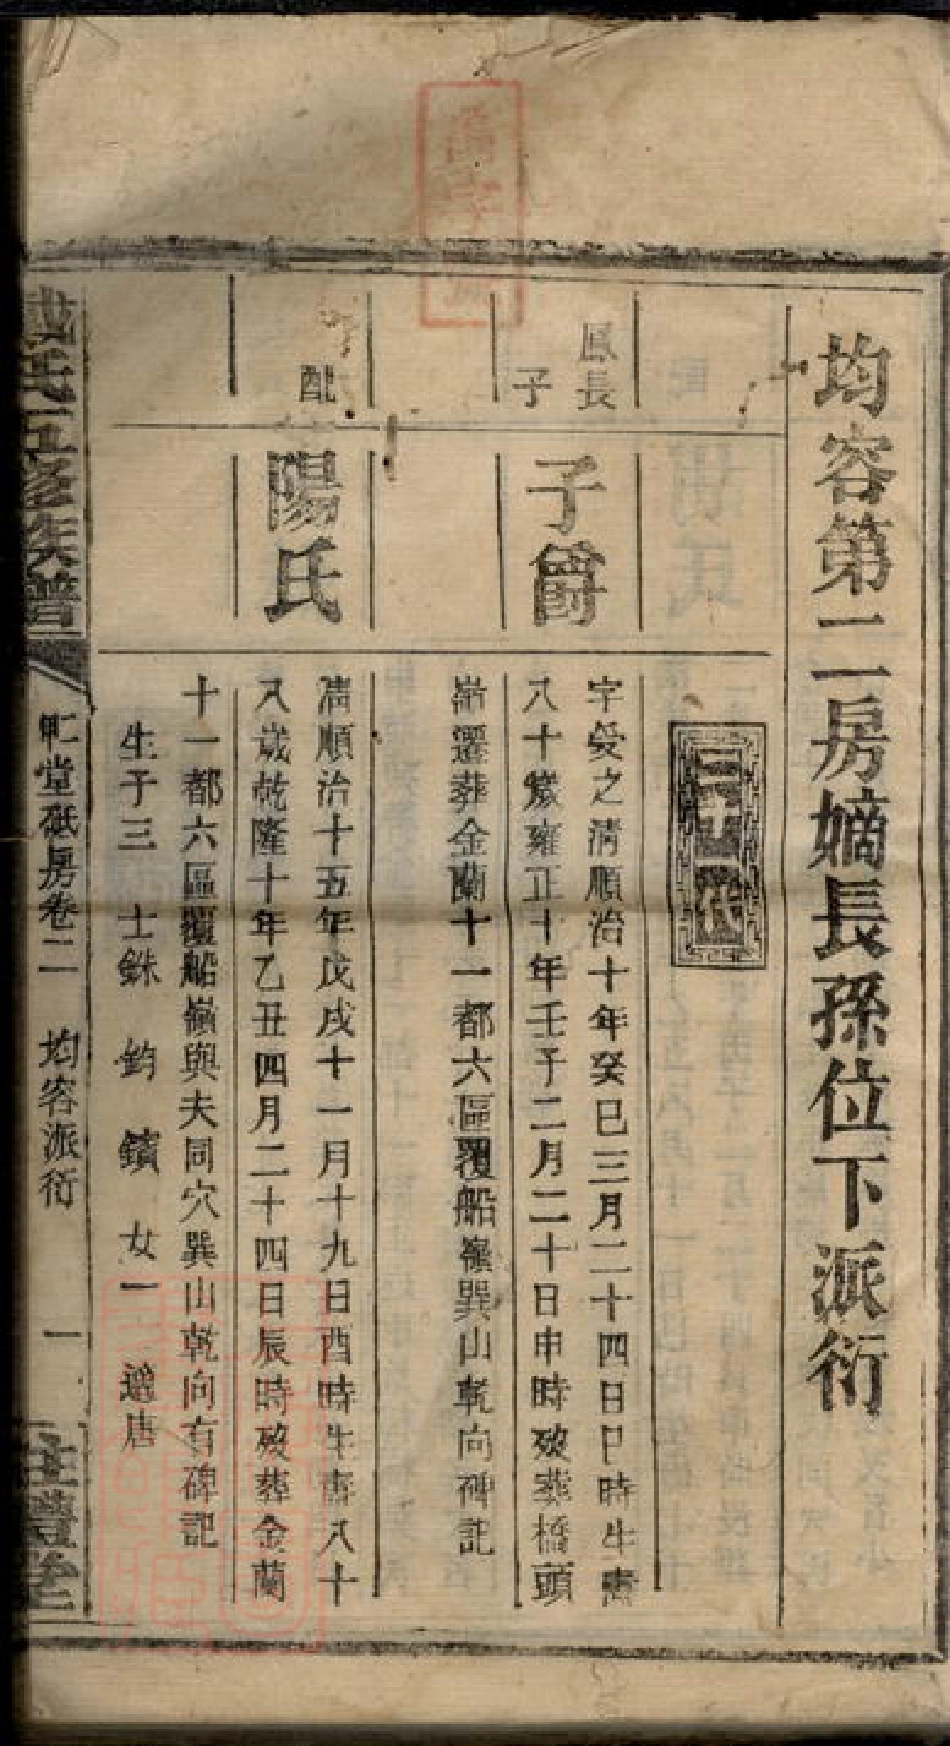 均容第二房嫡長孫位下派衍
二世
鳳長
子
子爵
字受之清順治十年癸巳三月二十四日巳時生壽
八十歲雍正十年壬子二月二十日申時歿葬橋頭
崙遷葬金蘭十一都六區覆船嶺巽山乾向碑記
配
陽氏
清順治十五年戊戌十一月十九日酉時生壽八十
八歲乾隆十年乙丑四月二十四日辰時歿葬金蘭
十一都六區覆船嶺與夫同穴巽山乾向有碑記
生子三 士銖 鈞 鑌 女一 適唐
氏五修族譜
堂砥房卷二 均容派衍 一